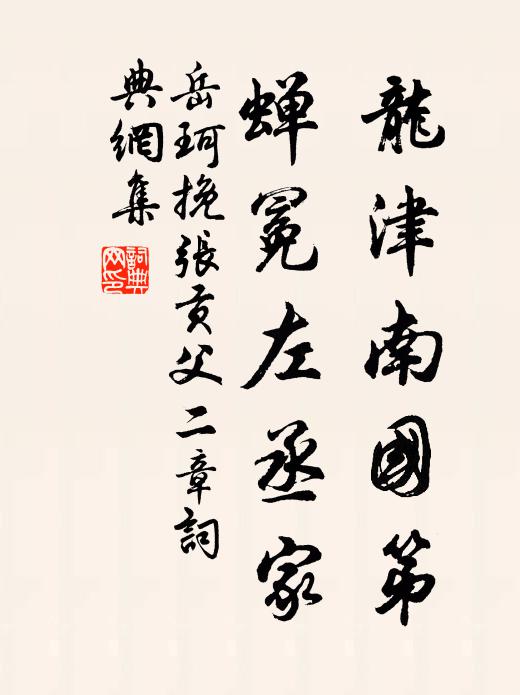 龍津南國第
蟬冕左丞家
岳珂挽張貢父二章詞
典網集
詞典網印